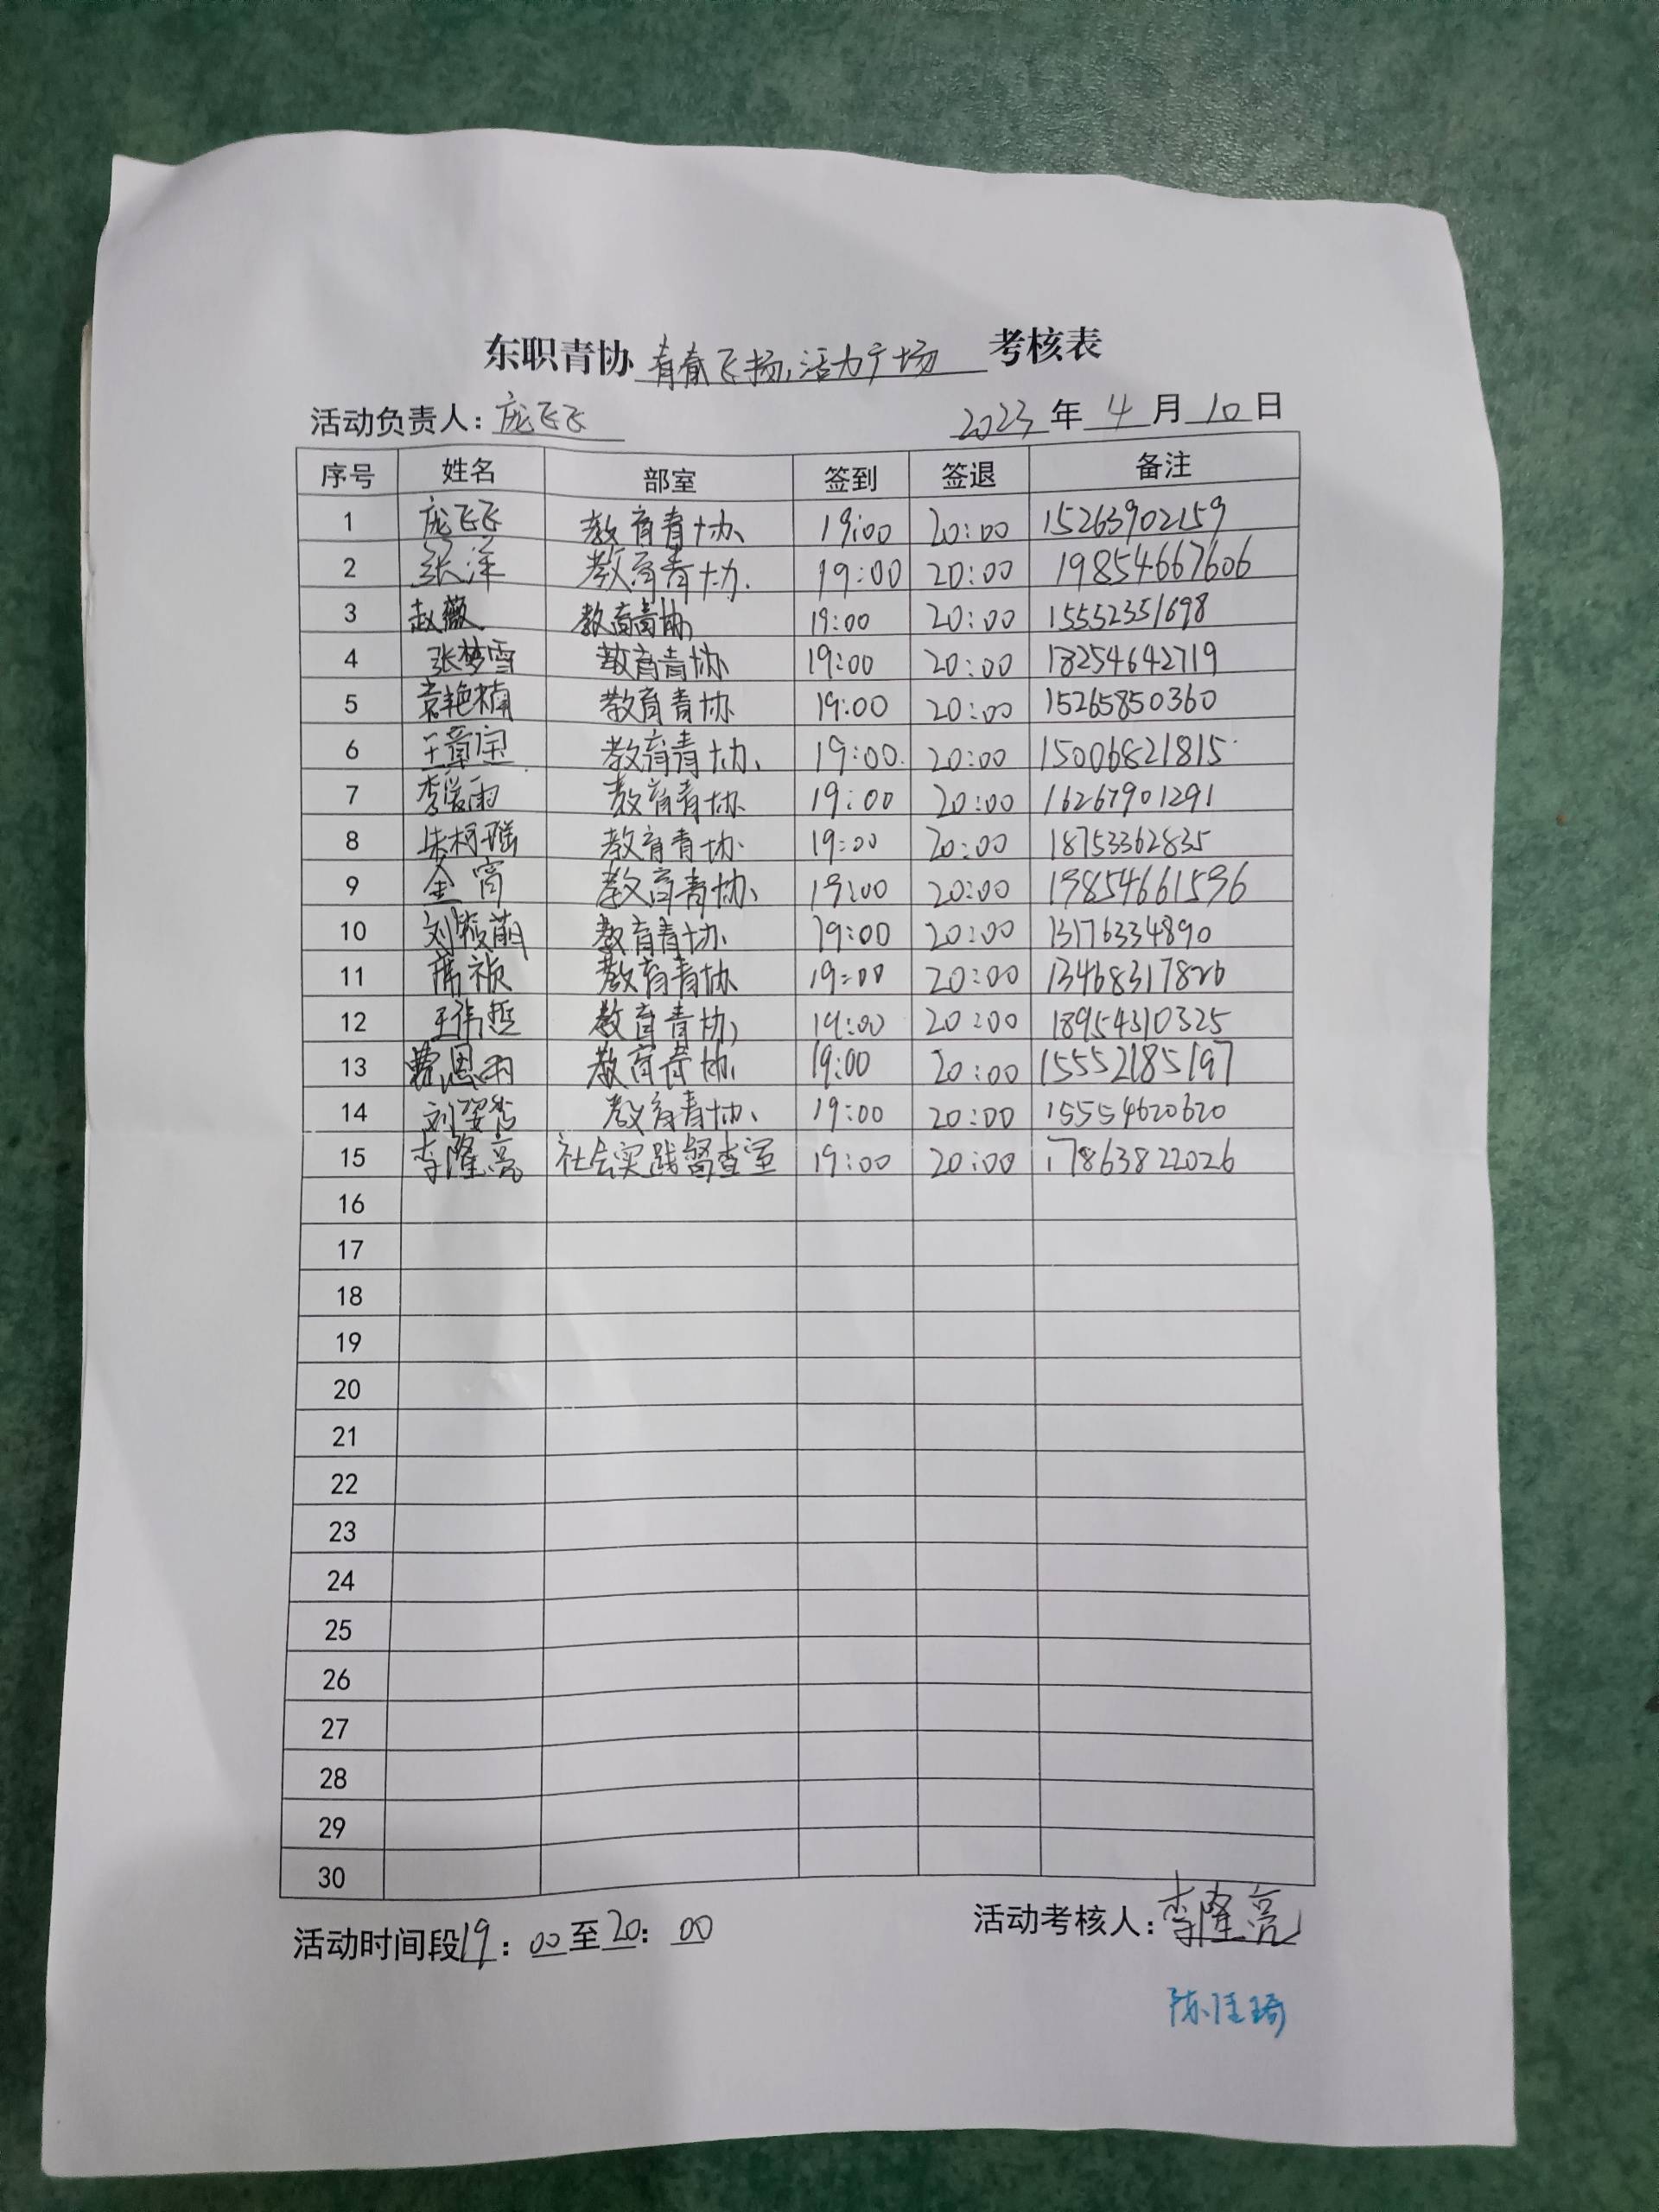 东职青协 青春飞扬,活力广场 考核表
活动负责人：庞飞飞 2023年4月10日
序号 姓名 部室 签到 签退 备注
1 庞飞飞 教育青协 19:00 20:00 15263902159
2 张洋 教育青协 19:00 20:00 19854667606
3 赵薇 教育青协 19:00 20:00 15552351698
4 张梦雪 教育青协 19:00 20:00 18254642719
5 袁艳楠 教育青协 19:00 20:00 15265850360
6 王章宝 教育青协 19:00 20:00 15006821815
7 李爱雨 教育青协 19:00 20:00 16267901291
8 朱柯瑶 教育青协 19:00 20:00 18753362835
9 金宵 教育青协 19:00 20:00 19854661596
10 刘筱萌 教育青协 19:00 20:00 13176334890
11 席祯 教育青协 19:00 20:00 13468317826
12 王伟哲 教育青协 19:00 20:00 18954310325
13 费恩雨 教育青协 19:00 20:00 15552185197
14 刘 教育青协 19:00 20:00 15554620620
15 李隆亮 社会实践督查室 19:00 20:00 17863822026
16
17
18
19
20
21
22
23
24
25
26
27
28
29
30
活动时间段19：00至20：00 活动考核人：李隆亮
陈佳琦